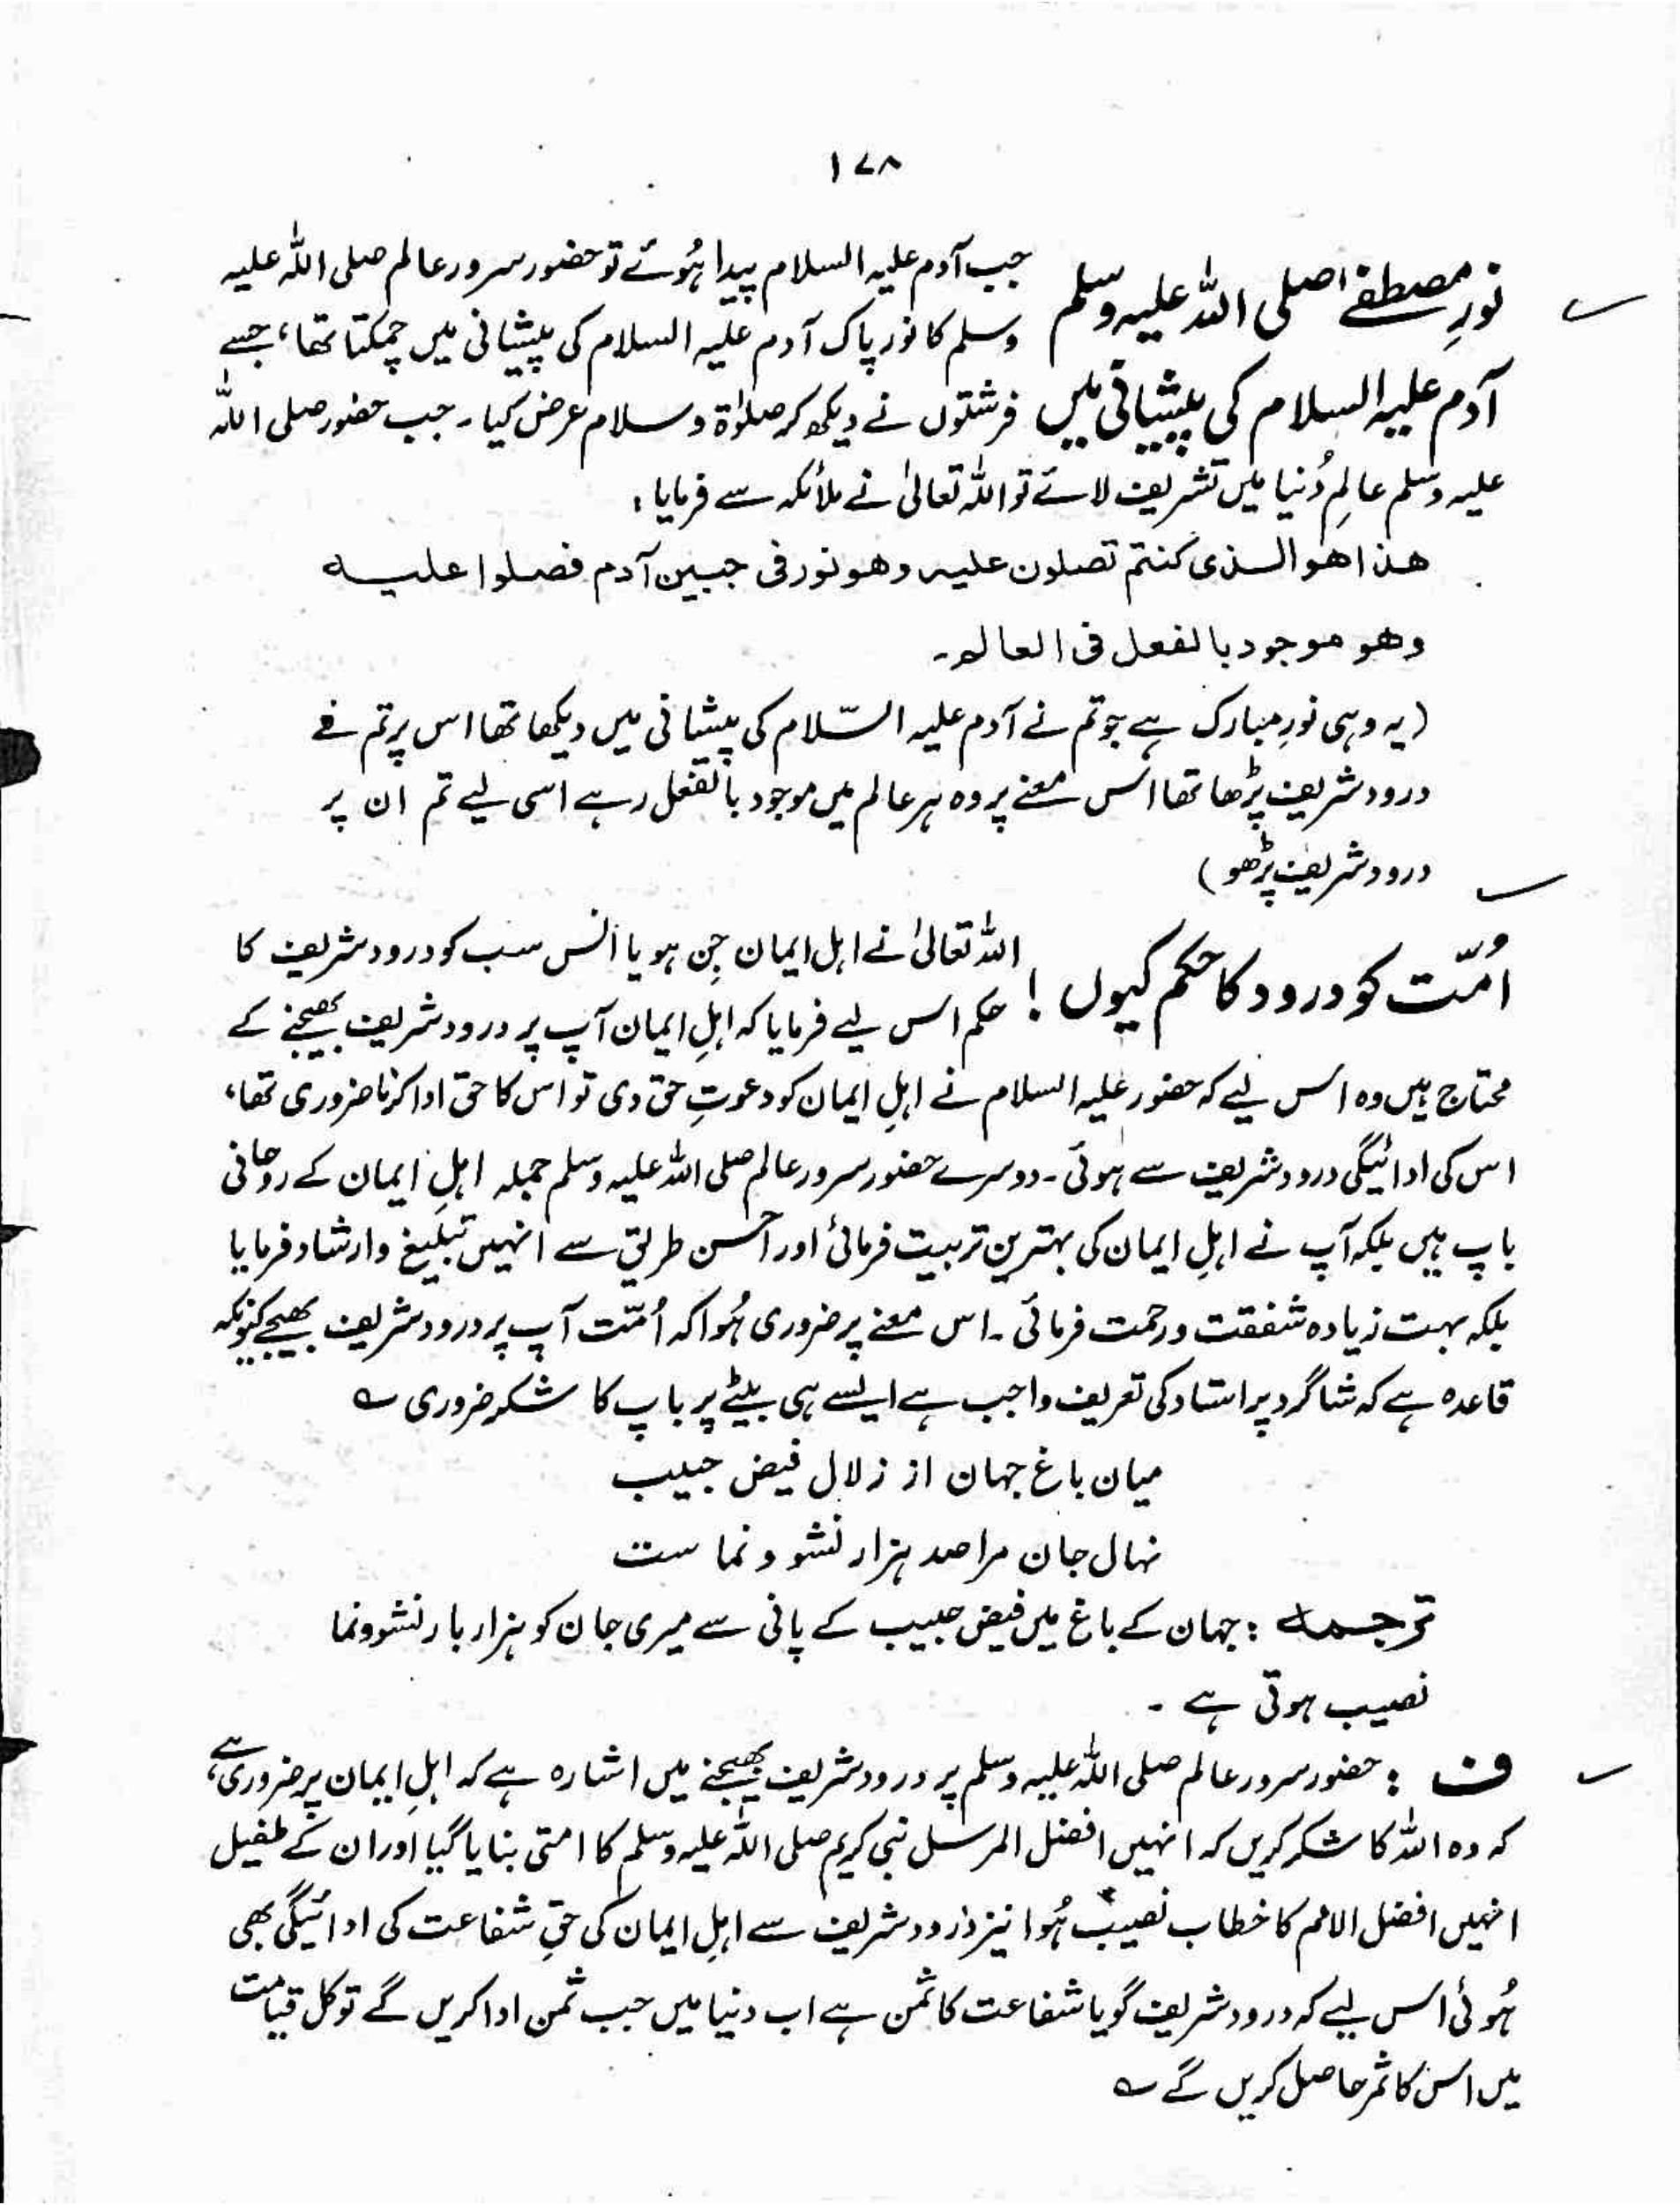 ۱۷۸
نورِ مصطفےٰ صلی اللہ علیہ وسلم
آدم علیہ السلام کی پیشانی میں
جب آدم علیہ السلام پیدا ہُوئے تو حضور سرور عالم صلی اللہ علیہ
وسلم کا نور پاک آدم علیہ السلام کی پیشانی میں چمکتا تھا، جسے
فرشتوں نے دیکھ کر صلوٰۃ و سلام عرض کیا۔ جب حضور صلی اللہ
علیہ وسلم عالمِ دُنیا میں تشریف لائے تو اللہ تعالیٰ نے ملائکہ سے فرمایا:
ھذا ھو الذی کنتم تصلون علیہ وھو نور فی جبین آدم فصلوا علیہ
وھو موجود بالفعل فی العالم۔
(یہ وہی نورِ مبارک ہے جو تم نے آدم علیہ السّلام کی پیشانی میں دیکھا تھا اس پر تم نے
درود شریف پڑھا تھا اس معنے پر وہ ہر عالم میں موجود بالفعل رہے اسی لیے تم ان پر
درود شریف پڑھو)
اُمّت کو درود کا حکم کیوں!
اللہ تعالیٰ نے اہل ایمان جِن ہو یا انس سب کو درود شریف کا
حکم اس لیے فرمایا کہ اہلِ ایمان آپ پر درود شریف بھیجنے کے
محتاج ہیں وہ اس لیے کہ حضور علیہ السلام نے اہلِ ایمان کو دعوتِ حق دی تو اس کا حق ادا کرنا ضروری تھا،
اس کی ادائیگی درود شریف سے ہوئی۔ دوسرے حضور سرور عالم صلی اللہ علیہ وسلم جملہ اہلِ ایمان کے روحانی
باپ ہیں بلکہ آپ نے اہلِ ایمان کی بہترین تربیت فرمائی اور احسن طریق سے انہیں تبلیغ وارشاد فرمایا
بلکہ بہت زیادہ شفقت و رحمت فرمائی۔ اس معنے پر ضروری ہُوا کہ اُمّت آپ پر درود شریف بھیجے کیونکہ
قاعدہ ہے کہ شاگرد پر استاد کی تعریف واجب ہے ایسے ہی بیٹے پر باپ کا شکر ضروری ؎
میان باغ جہان از زلال فیض حبیب
نہال جان مرا صد ہزار نشو و نما ست
ترجمہ : جہان کے باغ میں فیض حبیب کے پانی سے میری جان کو ہزار بار نشوونما
نصیب ہوتی ہے ۔
ف : حضور سرور عالم صلی اللہ علیہ وسلم پر درود شریف بھیجنے میں اشارہ ہے کہ اہلِ ایمان پر ضروری ہے،
کہ وہ اللہ کا شکر کریں کہ انہیں افضل المرسل نبی کریم صلی اللہ علیہ وسلم کا امتی بنایا گیا اور ان کے طفیل
انہیں افضل الامم کا خطاب نصیب ہُوا نیز درود شریف سے اہلِ ایمان کی حقِ شفاعت کی ادائیگی بھی
ہُوئی اس لیے کہ درود شریف گویا شفاعت کا ثمن ہے اب دنیا میں جب ثمن ادا کریں گے تو کل قیامت
میں اس کا ثمر حاصل کریں گے ؎